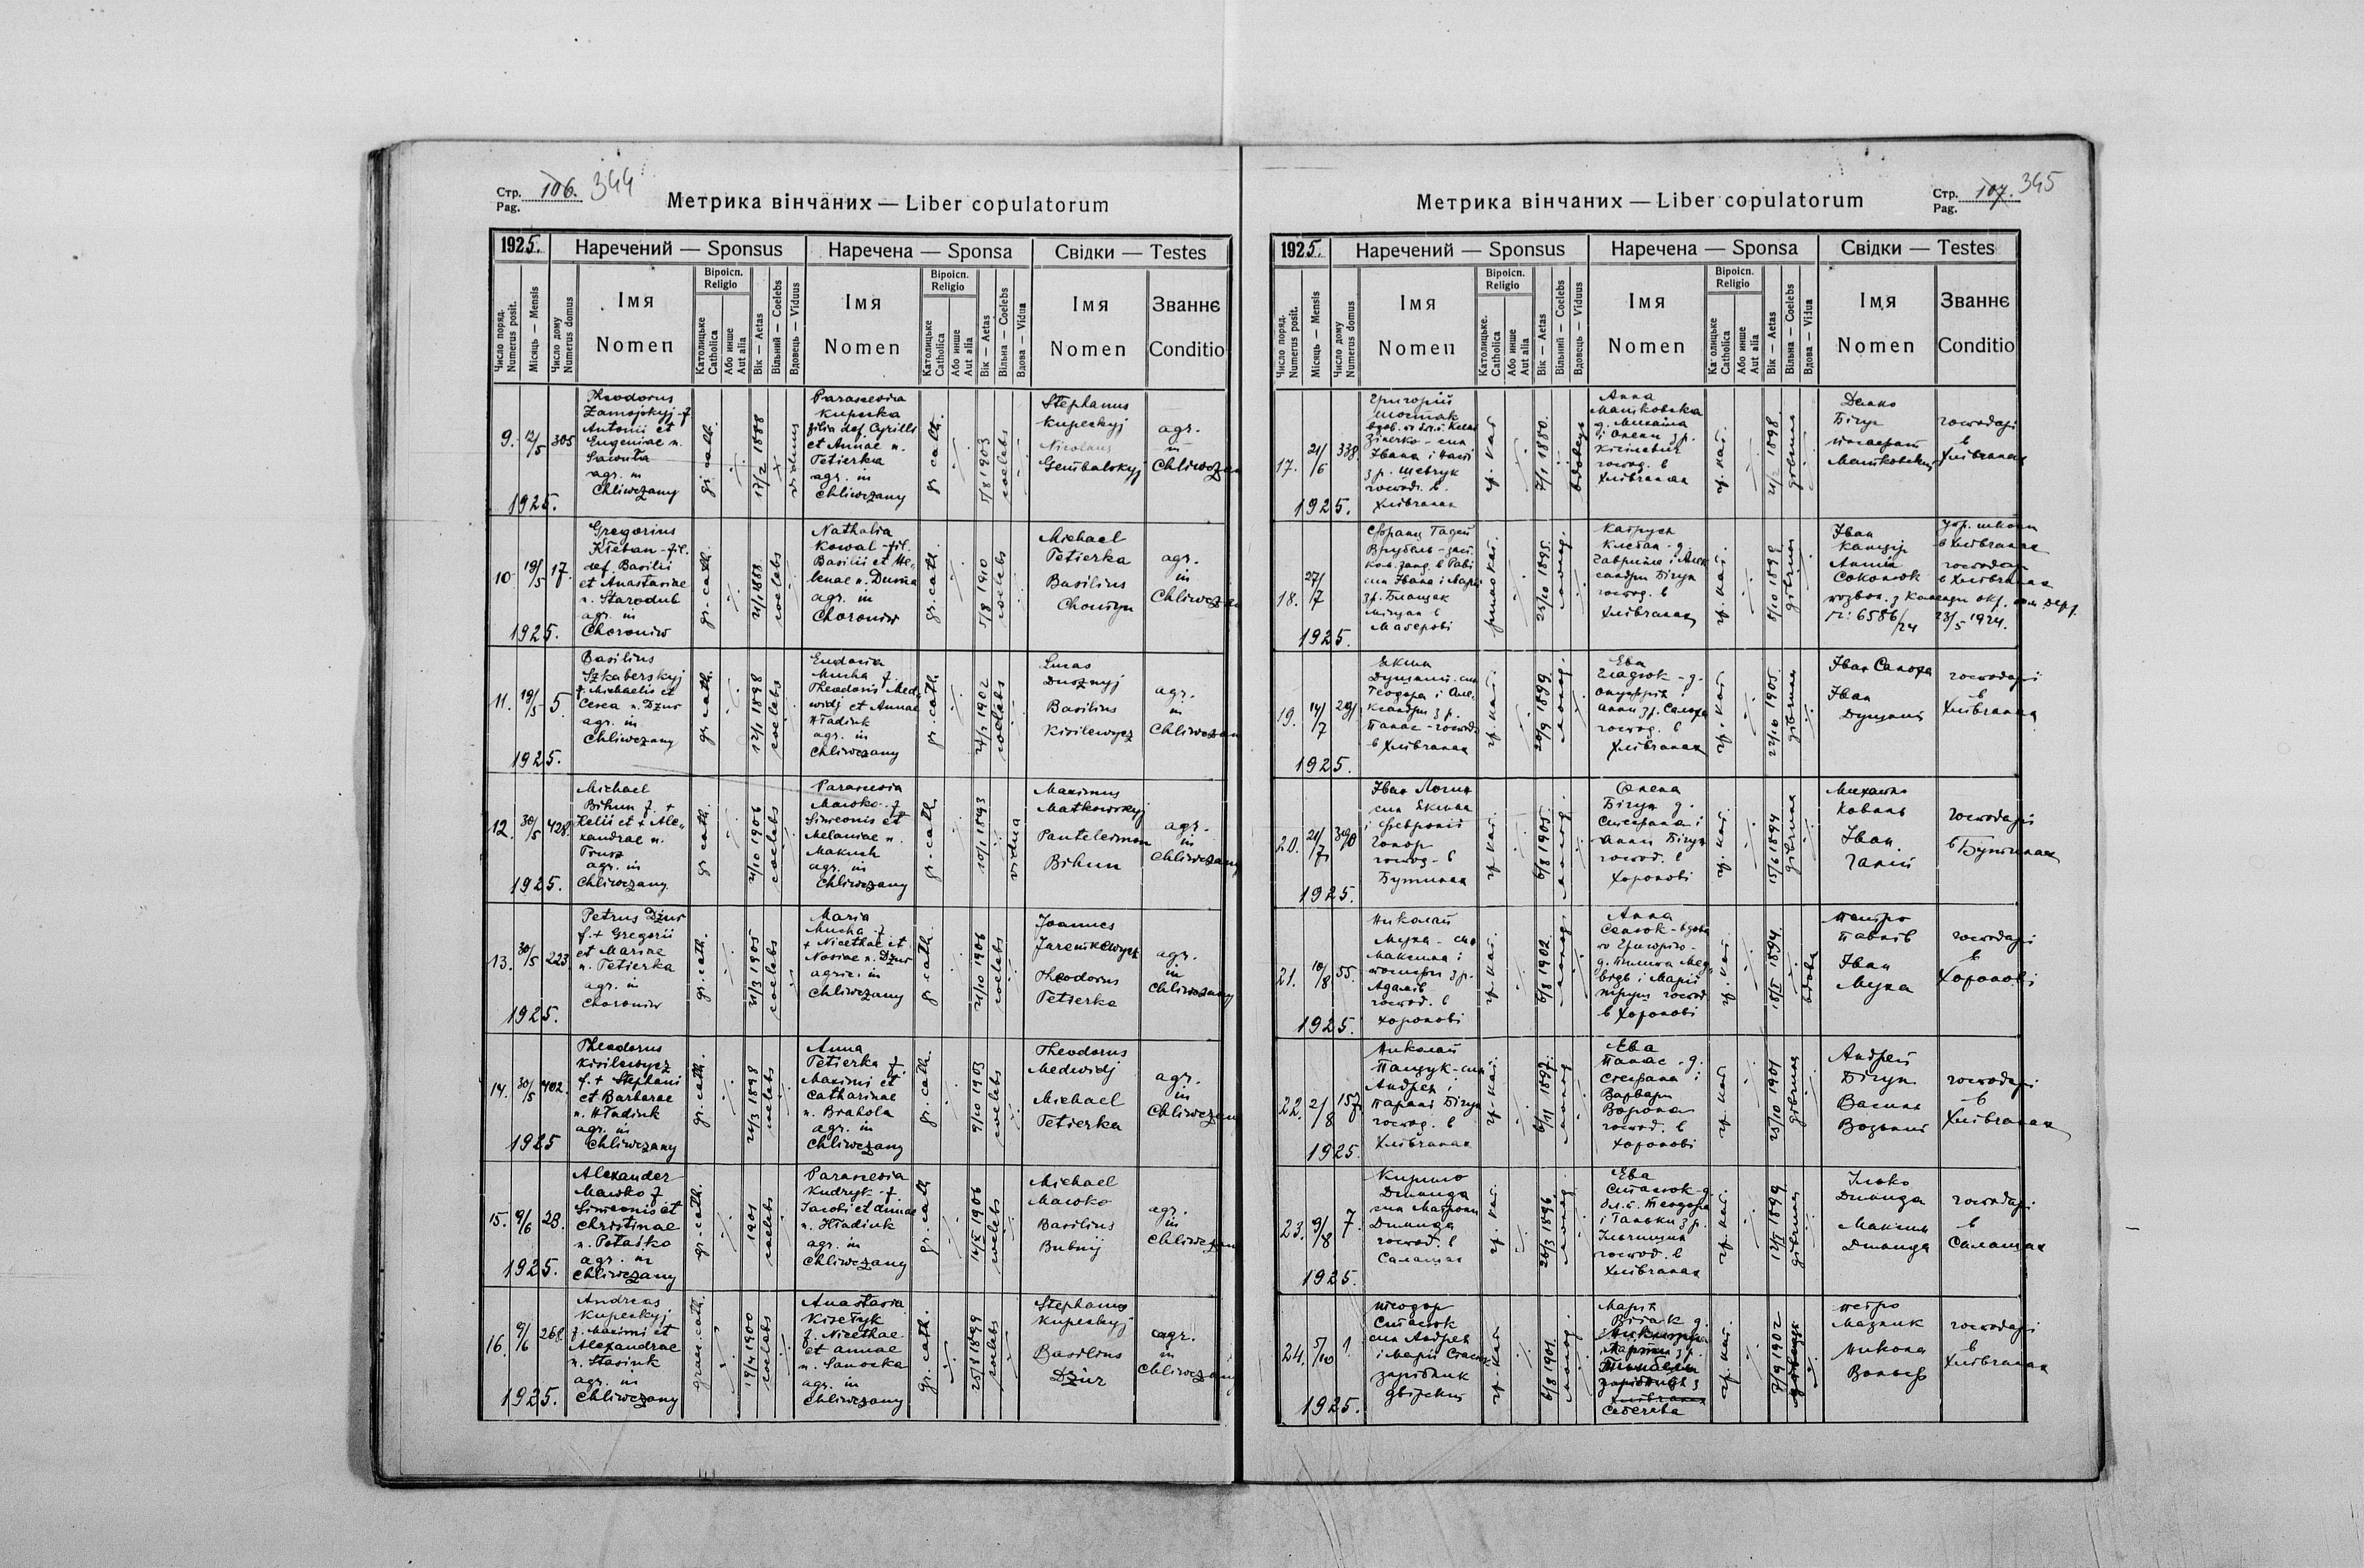 Стр. 106. 344
Pag.
Метрика вінчаних — Liber copulatorum
1925. Наречений — Sponsus Наречена — Sponsa Свідки — Testes
Число поряд. Numerus posit.
Місяць — Mensis
Число дому Numerus domus
Імя
Nomen
Віроісп. Religio
Католицьке Catholica
Або инше Aut alia
Вік — Aetas
Вільний — Coelebs
Вдовець — Viduus
Імя
Nomen
Віроісп. Religio
Католицьке Catholica
Або инше Aut alia
Вік — Aetas
Вільна — Coelebs
Вдова — Vidua
Імя
Nomen
Званнє
Conditio
9. 12/5 305
1925.
Theodorus
Zamojskyj f
Antonii et
Eugeniae n.
agr. in
Chliwczany
gr. cath.
17/2 1888
viduus
Parascevia
Kupecka
filia def Cyrilli
et Annae n.
Petierka
agr. in
Chliwczany
gr cath.
5/8 1903
coelebs
Stephanus
Kupeckyj
Nicolaus
Gembalskyj
agr.
in
Chliwczany
10 19/5 17.
1925.
Gregorius
Kłeban - fil.
def. Basilii
et Anastasiae
n. Starodub
agr. in
Choroniw
gr. cath.
21/1 1888.
coelebs
Nathalia
Kowal - fil.
Basilii et He-
lenae n. Duma
agr. in
Choroniw
gr. cath.
5/8 1910
coelebs
Michael
Petierka
Basilius
agr.
in
Chliwczany
11. 19/5 5.
1925.
Basilius
Szkaberskyj
f. Michaelis et
n. Dzur
agr. in
Chliwczany
gr. cath.
12/1 1898
coelebs
Eudocia
Mucha f.
Theodoris Med-
widj et Annae
Hładiuk
agr. in
Chliwczany
gr. cath.
24/2 1902
coelebs
Lucas
Basilius
Kisilewycz
agr.
in
Chliwczany
12. 30/5 428.
1925.
Michael
Bihun f. +
et + Ale-
xandrae n.
agr. in
Chliwczany
gr. cath.
21/10 1906
coelebs
Parascevia
Mawko f.
Simeonis et
Melaniae n.
Makuch
agr. in
Chliwczany
gr. cath.
10/1 1893
vidua
Maximus
Matkowskyj
Panteleimon
Bihun
agr.
in
Chliwczany
13. 30/5 223.
1925.
Petrus Dżur
f. + Gregorii
et Mariae
n. Petierka
agr. in
Choroniw
gr. cath.
21/3 1905
coelebs
Maria
Mucha f.
+ Nicethae et
n. Dżur
agric. in
Chliwczany
gr. cath.
21/10 1906
coelebs
Joannes
Jaremkewycz
Theodorus
Petierka
agr.
in
Chliwczany
14. 30/5 402.
1925
Theodorus
Kisilewycz
f. + Stephani
et Barbarae
n. Hładiuk
agr. in
Chliwczany
gr. cath.
21/3 1898
coelebs
Anna
Petierka f.
Maximi et
Catharinae
n. Brahola
agr. in
Chliwczany
gr. cath.
9/10 1903
coelebs
Theodorus
Medwidj
Michael
Petierka
agr.
in
Chliwczany
15. 9/6 28.
1925.
Alexander
Mawko f
Simeonis et
Christinae
n. Potaśko
agr. in
Chliwczany
gr. cath.
1901
coelebs
Parascevia
Kudryk f.
Jacobi et Annae
n. Hładiuk
agr. in
Chliwczany
gr. cath
14/X 1906
coelebs
Michael
Mawko
Basilius
Bubnij
agr.
in
Chliwczany
16. 9/6 268.
1925.
Andreas
Kupeckyj
f. Maximi et
Alexandrae
n. Stasiuk
agr. in
Chliwczany
graec. cath.
19/4 1900
coelebs
Anastasia
Kisełyk
f. Nicethae
et Annae
n. Sanocka
agr. in
Chliwczany
gr. cath.
25/8 1899
coelebs
Stephanus
Kupeckyj
Basilius
Dżur
agr.
in
Chliwczany
Стр. 107. 345
Pag.
Метрика вінчаних — Liber copulatorum
1925. Наречений — Sponsus Наречена — Sponsa Свідки — Testes
Число поряд. Numerus posit.
Місяць — Mensis
Число дому Numerus domus
Імя
Nomen
Віроісп. Religio
Католицьке. Catholica
Або инше Aut alia
Вік — Aetas
Вільний — Coelebs
Вдовець — Viduus
Імя
Nomen
Віроісп. Religio
Ка олицьке Catholica
Або инше Aut alia
Вік — Aetas
Вільна — Coelebs
Вдова — Vidua
Імя
Nomen
Званнє
Conditio
17. 21/6 338.
1925.
Григорій
Шостак
Івана і
з р. Шевчук
господ. в
Хлівчанах
гр. кат
7/1 1880.
вдовець
Анна
Матковска
д. Михаіла
і Олени з р.
Кісілевич
господ. в
Хлівчанах
гр. кат.
21/2 1898.
дівчина
Данко
Бігун
Матковский
господарі
в
Хлівчанах
18. 27/7
1925.
Врубель
син Івана і Марії
зр. Блащак
міщан в
Магерові
римокат.
25/10 1895.
молод.
Катруся
Клебан - д.
Гавриіла і Алек
сандри Бігун
господ. в
Хлівчанах
гр. кат.
8/10 1899
дівчина
Іван
Канцір
Антін
Соколюк
упр. школи
в Хлівчанах
господар
в Хлівчанах
ч: 6586/24 23/5 1924.
19. 14/7 291
1925.
Яким
Дуцкий син
Теодора і Оле-
ксандри з р.
Панас - господ.
в Хлівчанах
гр. кат.
20/9 1899
молод.
Ева
Гладюк - д.
Онуфрія і
Анни зр. Салоха
господ. в
Хлівчанах
гр. кат.
22/10 1905.
дівчина
Іван Салоха
Іван
Дуцкий
господарі
в
Хлівчанах
20. 21/7 390
1925.
Іван Логин
син Якима
і Февронії
Гонор
господ. в
Бутинах
гр. кат.
6/8 1905.
молод.
Олена
Бігун д.
Стефана і
Анни Бігун
господ. в
Хоронові
гр. кат.
15/6 1894
дівчина
Михайло
Коваль
Іван
Галий
господарі
в Бутинах
21. 10/8 55.
1925.
Николай
Муха - син
Максима і
з р.
Адамів
господ. в
Хоронові
гр. кат.
6/8 1902.
молод
Анна
Сенюк - вдова
по Григорію -
д. Пилипа Мед-
видь і Марії
господ
в Хоронові
гр. кат.
18/X 1894.
вдова
Петро
Павлів
Іван
Муха
господарі
в
Хоронові
22. 2/8 157
1925.
Николай
Пащук син
Андрея і
Парані Бігун
господ. в
Хлівчанах
гр. кат.
6/11 1897.
молод
Ева
Панас - д.
Стефана і
Варвари
Ворона
господ. в
Хоронові
гр. кат.
25/10 1901
дівчина
Андрей
Бігун
Василь
Возьний
господарі
в
Хлівчанах
23. 9/8 7.
1925.
Кирило
Дшинда
син Матрони
Дшинда
господ. в
Салашах
гр. кат.
26/3 1896
молод.
Ева
Стасюк д.
бл. п. Теодора
і Таньки з р.
Ільчишин
господ. в
Хлівчанах
гр. кат.
12/X 1899
дівчина
Ілько
Дшинда
Максим
Дшинда
господарі
в
Салашах
24. 5/10 1
1925.
Теодор
Стасюк
син Андрея
і Марії Стасюк
зарібник
двірский
гр. кат.
6/8 1901.
молод.
Марія
д.
з р.
гр. кат.
7/9 1902
Петро
Мазник
Никола
господарі
в
Хлівчанах